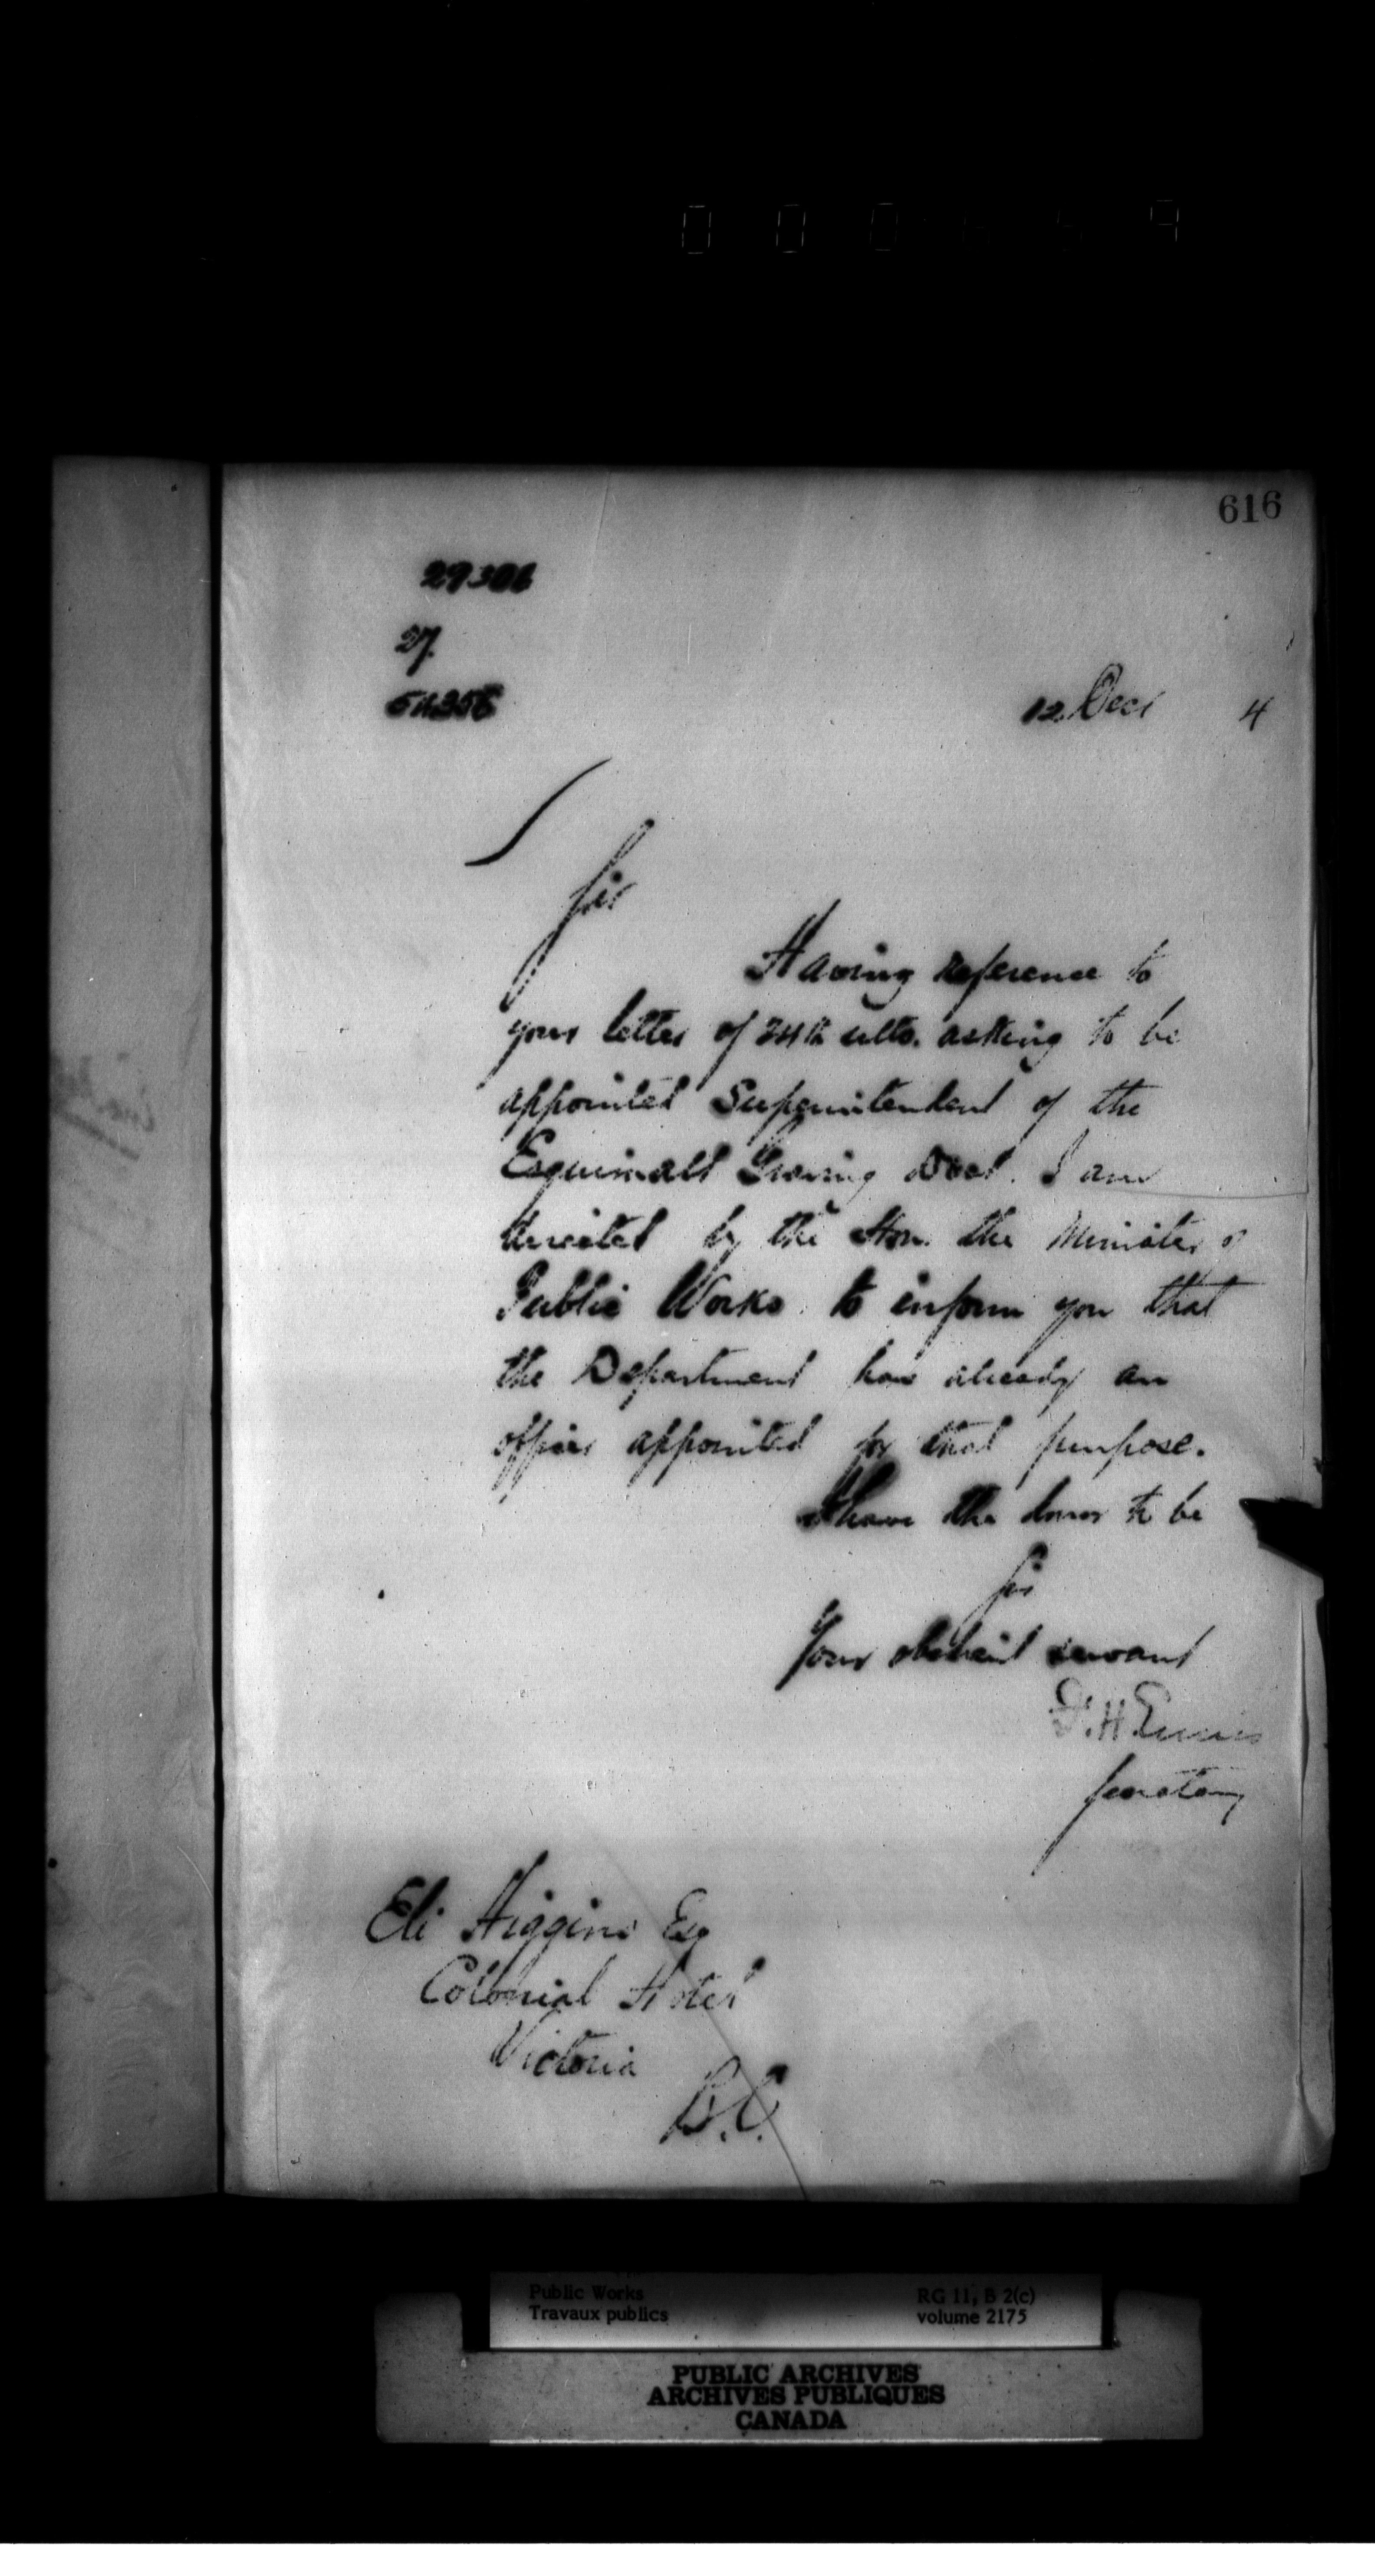 616
29306
27.
12 Decr 4
Sir
Having reference to
your letter of 24th ulto. asking to be
appointed Superintendent of the
Esquimalt Graving Dock. I am
directed by the Hon. the Minister of
Public Works to inform you that
the Department have already an
officer appointed for that purpose.
I have the honor to be
Sir
Your obedient servant
F. H. Ennis
Secretary
Eli Higgins Esq
Colonial Hotel
Victoria
B.C.
Public Works
Travaux publics
RG 11, B 2(c)
volume 2175
PUBLIC ARCHIVES
ARCHIVES PUBLIQUES
CANADA